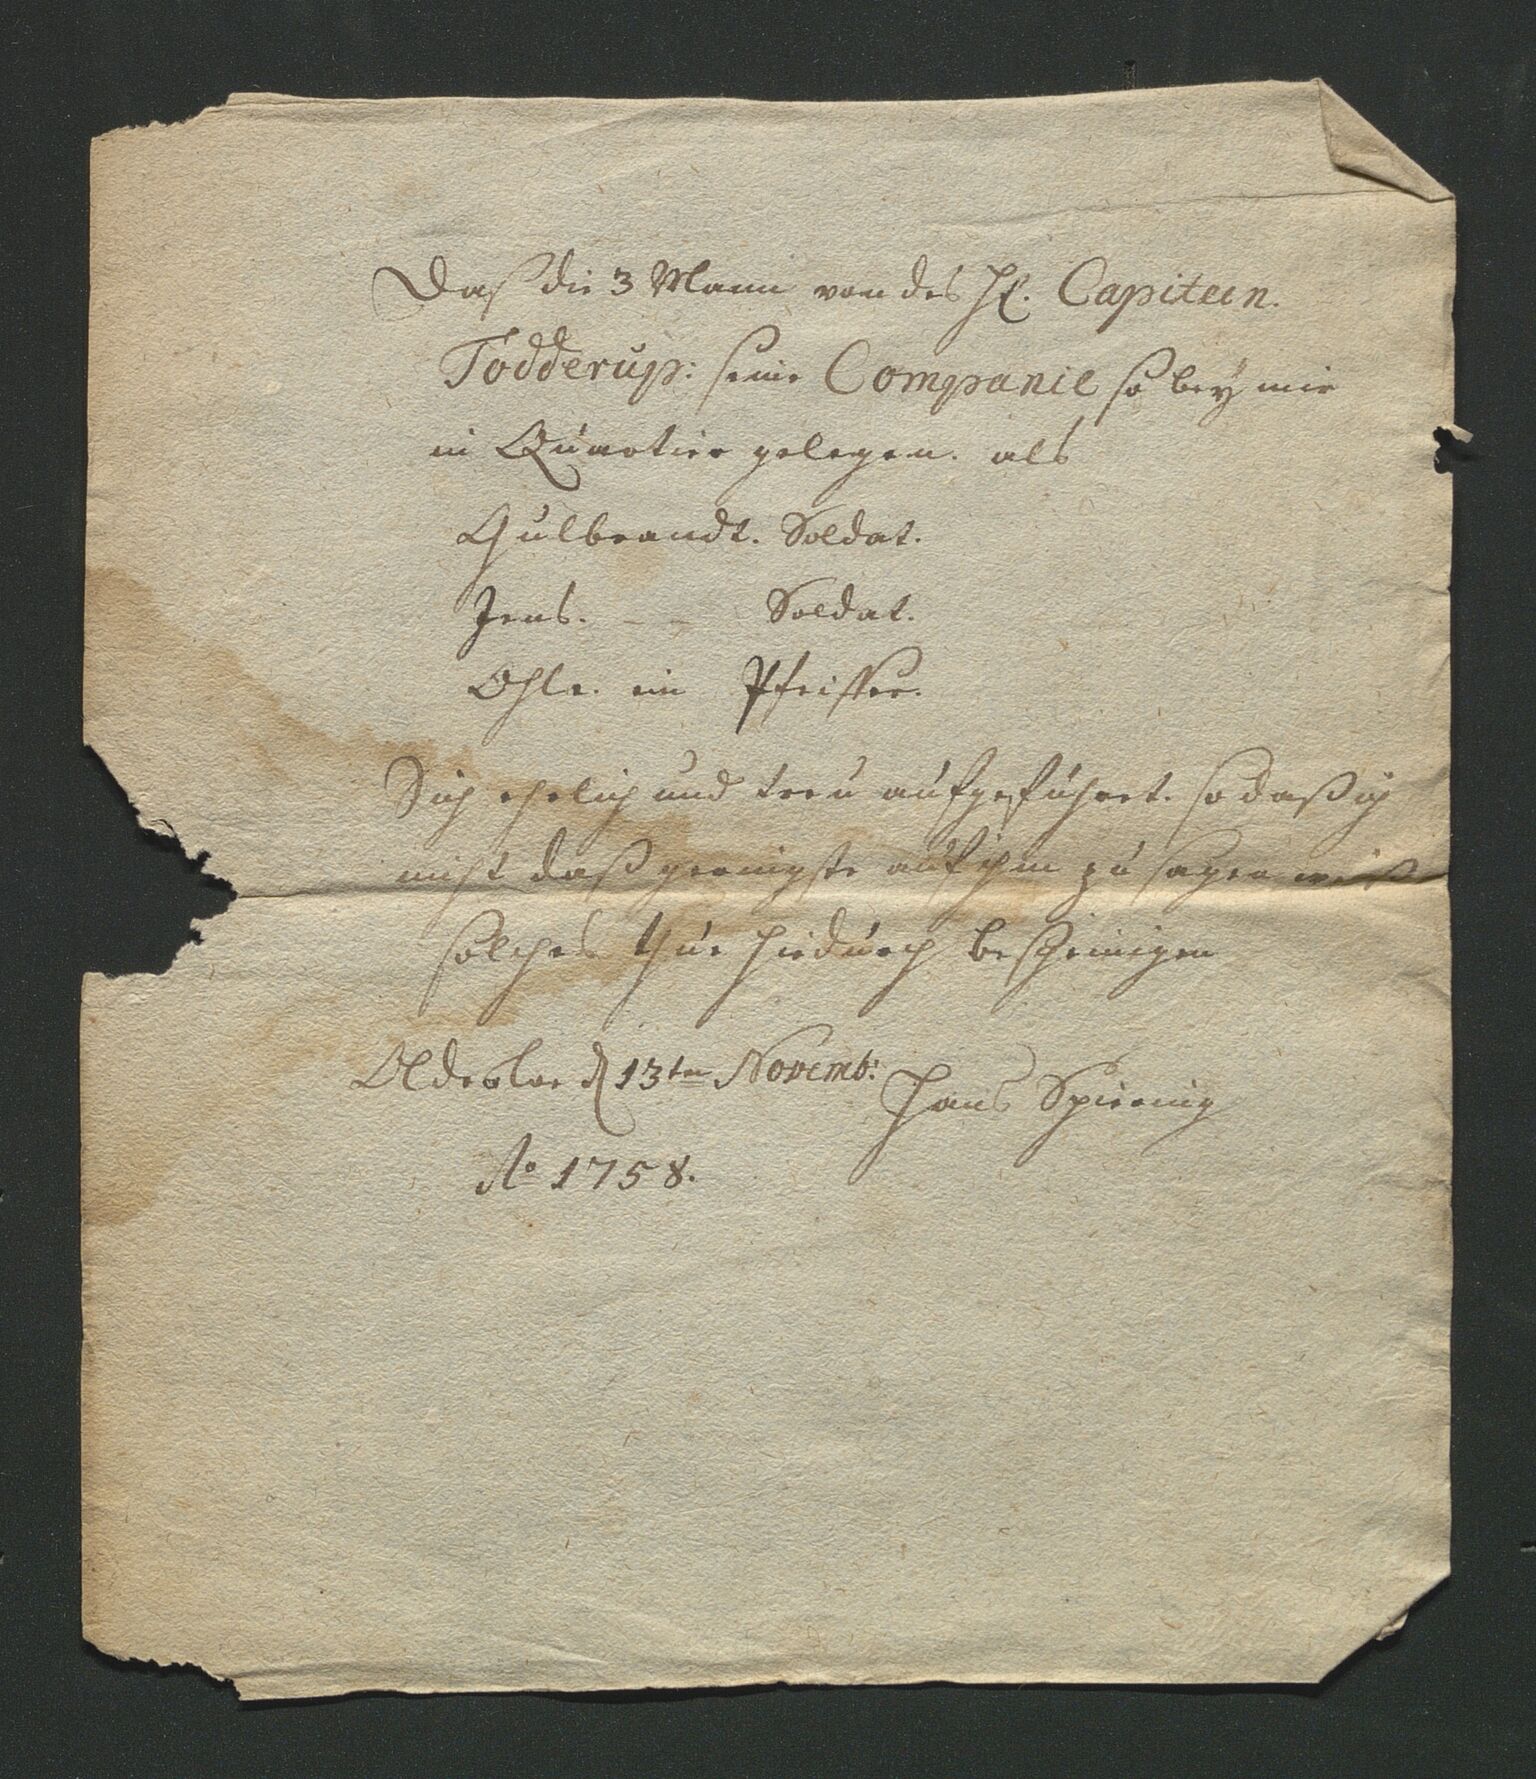 Daß die 3 Mann von des H. Capitein.
Tödderup: seine Companie so bey mir
in Quartier gelegen. als
Gulbrandt. Soldat.
Jens. - - Soldat.
Ohle. ein Pfeiffer.
Sich ehrlich und treu aufgeführet. so daß ich
nicht daß geringste auf ihm zu sagen weiß
solches thue hiedurch bescheinigen
Oldesloe d 13ten Novemb:
Hans Spiering
Ao 1758.